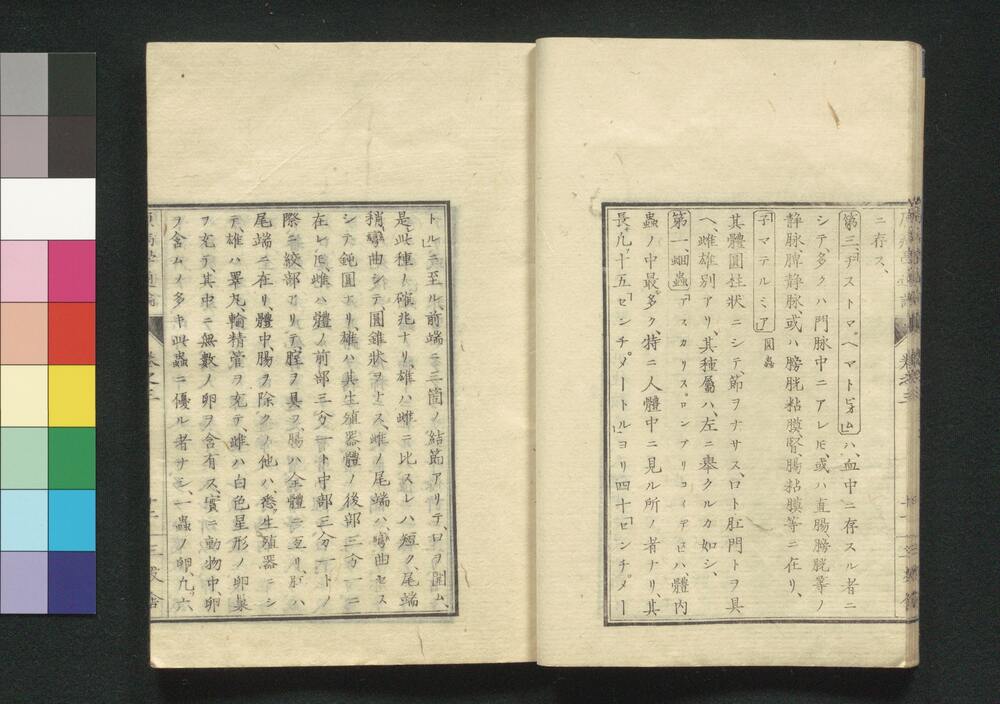 ニ存ス、
第三、「ヂストマ、ヘマトビゥム」ハ、血中ニ存スル者ニ
シテ、多クハ門脉中ニアレ𪜈、或ハ直腸、膀胱等ノ
静脉、脾静脉、或ハ膀胱粘膜、腎、腸粘膜等ニ在リ、
「子マテルミア」圓蟲
其體圓柱狀ニシテ、節ヲナサス、口ト肛門トヲ具
ヘ、雌雄別アリ、其種屬ハ、左ニ擧クルカ如シ、
第一、蛔蟲「アスカリス、ロンブリコイデス」ハ、體内
蟲ノ中最多ク、特ニ人體中ニ見ル所ノ者ナリ、其
長、凡ソ十五「センチメートル」ヨリ四十「センチメー
トル」ニ至ル、前端ニ三箇ノ結節アリテ、口ヲ圍ム、
是此種ノ確兆ナリ、雄ハ雌ニ比スレハ短ク、尾端
稍彎曲シテ、圓錐狀ヲナス、雌ノ尾端ハ、彎曲セス
シテ鈍圓ナリ、雄ハ其生殖器體ノ後部三分一ニ
在レ𪜈、雌ハ體ノ前部三分一ト中部三分一トノ
際ニ絞部アリテ、膣ヲ具フ、腸ハ全體ニ亙リ、肛ハ
尾端ニ在リ、體中、腸ヲ除クノ他ハ、悉生殖器ニシ
テ、雄ハ睪丸、輸精管ヲ充テ、雌ハ白色星形ノ卵巢
ヲ充テ、其中ニ無數ノ卵ヲ含有ス、實ニ動物中、卵
ヲ含ムノ多キ、此蟲ニ優ル者ナシ、一蟲ノ卵、九ソ六